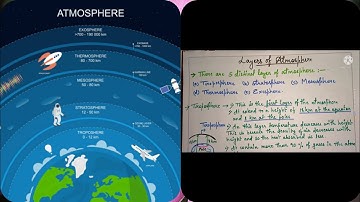 ATMOSPHERE
EXOSPHERE
>700 - 190 000 km
THERMOSPHERE
80 - 700 km
MESOSPHERE
50 - 80 km
STRATOSPHERE
12 - 50 km
TROPOSHERE
0 - 12 km
Layers of Atmosphere
→ There are 5 distinct layers of atmosphere :—
(a) Troposphere (b) Stratosphere (c) Mesosphere
(d) Thermosphere (e) Exosphere.
→ Troposphere → This is the first layer of the atmosphere
→ It extend to a height of 18 km at the equator
and 8 km at the poles
Troposphere
→ In this layer temperature decreases with height.
This is because the density of air decreases with
height and so the heat absorbed is less
→ It contain more than 90 % of gases in the atmos
Pole